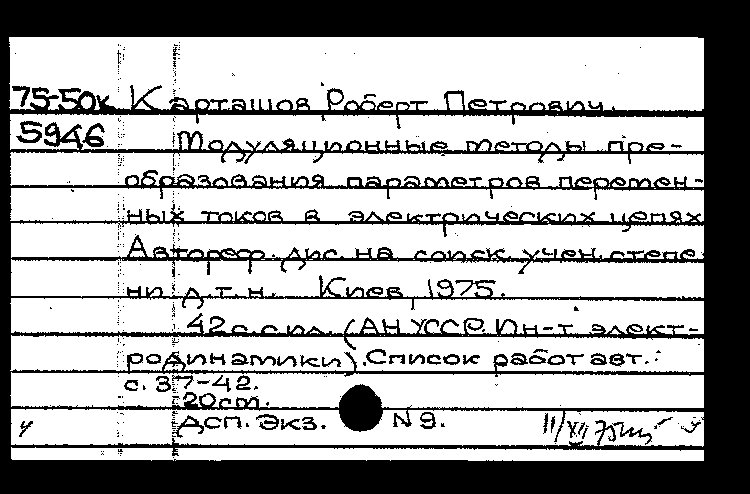 75-50к Карташов Роберт Петрович.
5946 Модуляционные методы пре-
образования параметров перемен-
ных токов в электрических цепях
Автореф. дис. на соиск. учен. степе
ни д.т.н. Киев, 1975.
42 с. с ил. (АН УССР. Ин-т элект-
родинамики). Список работ авт.:
с. 37-42.
20 cm.
ДСП. Экз. N 9.
II/XII